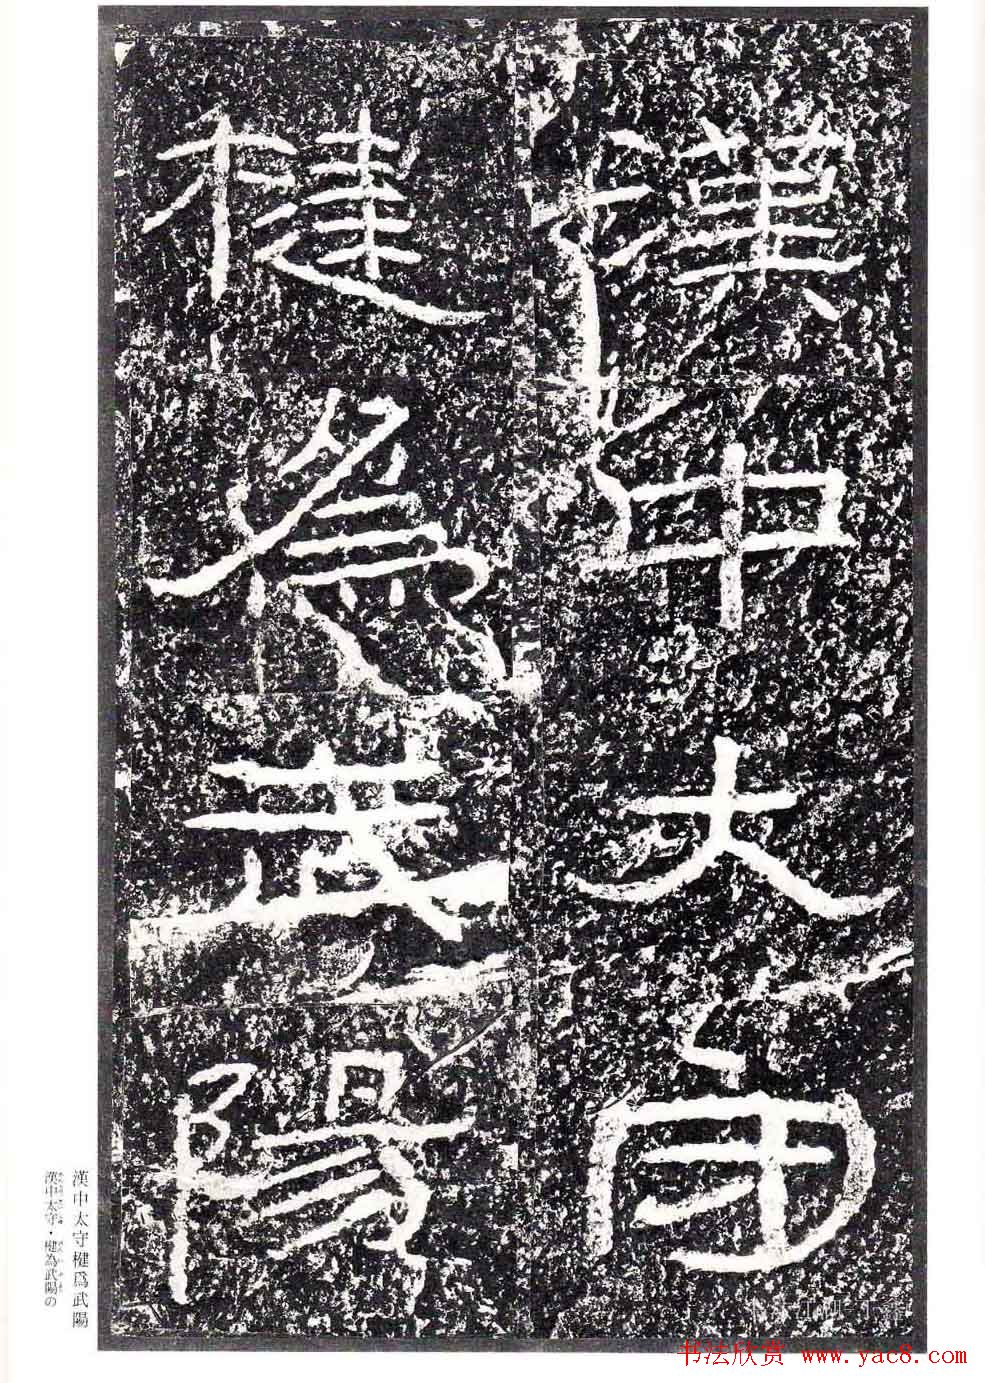 漢中太守
楗為武陽
漢中太守楗爲武陽
漢中太守・楗為武陽の
书法欣赏 www.yac8.com